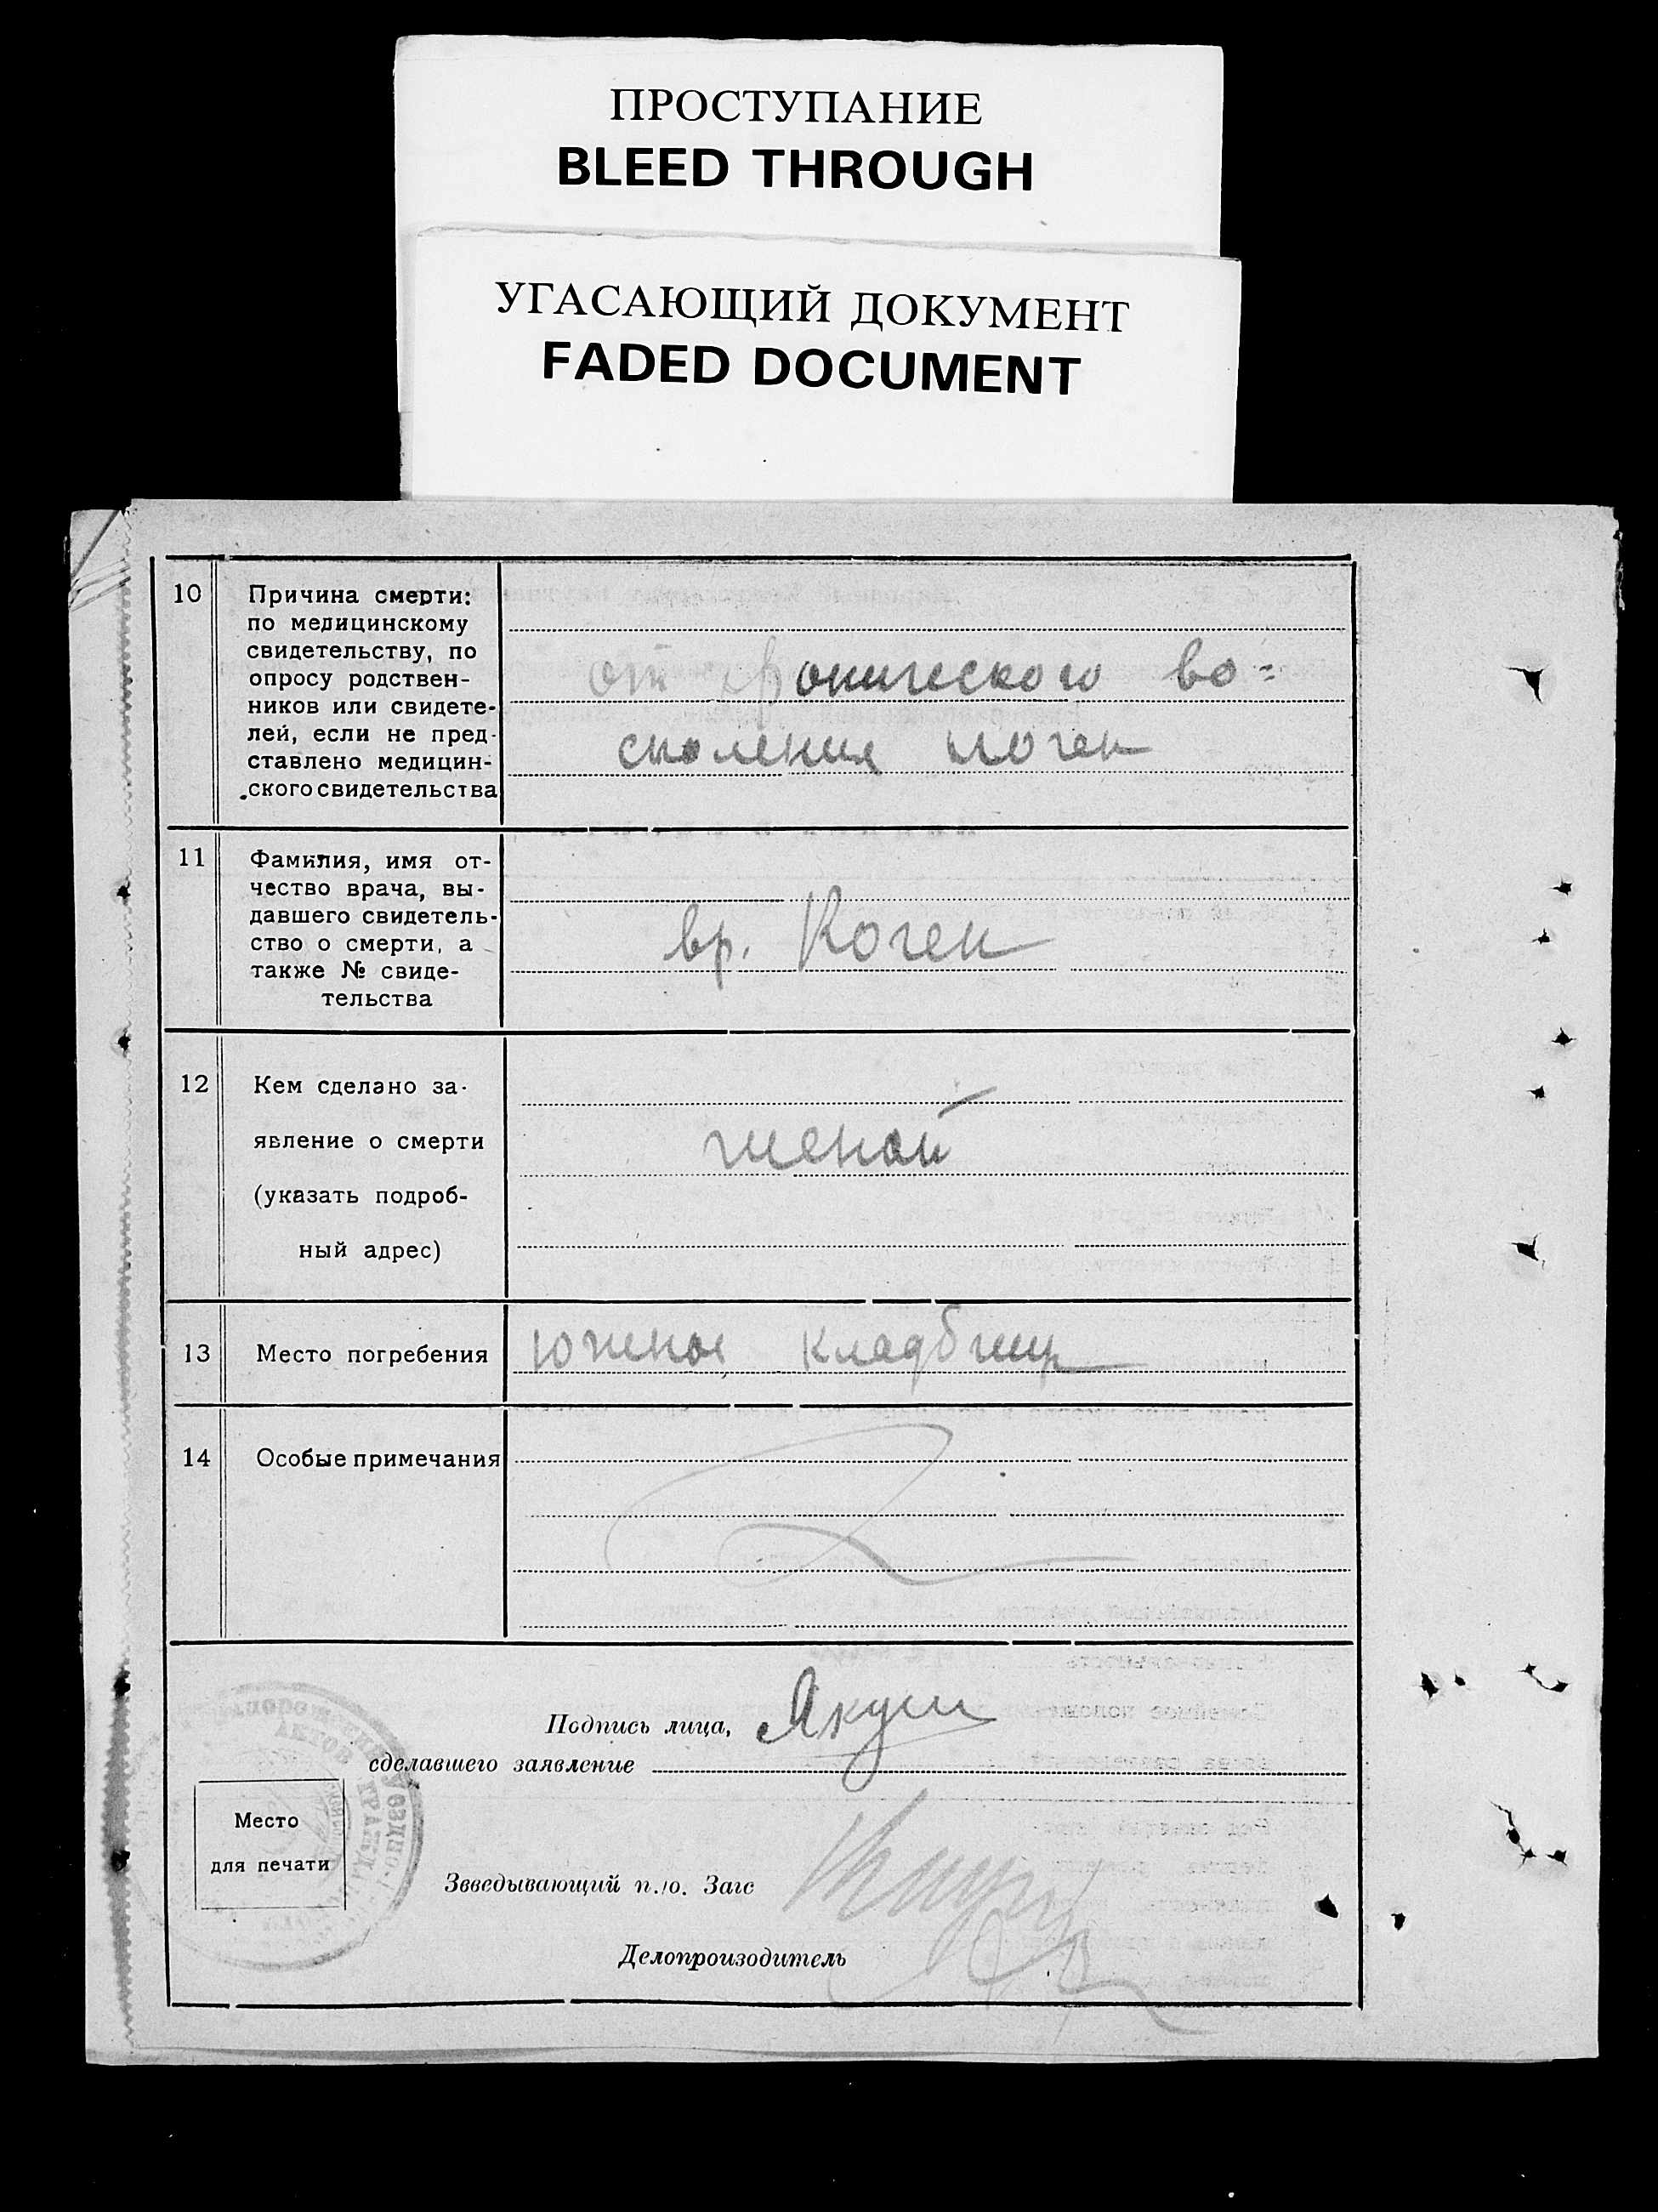 ПРОСТУПАНИЕ
BLEED THROUGH
УГАСАЮЩИЙ ДОКУМЕНТ
FADED DOCUMENT
10
Причина смерти:
по медицинскому
свидетельству, по
опросу родствен-
ников или свидете-
лей, если не пред-
ставлено медицин-
ского свидетельства
от хронического во=
споления почек
11
Фамилия, имя от-
чество врача, вы-
давшего свидетель-
ство о смерти, а
также № свиде-
тельства
вр. Коген
12
Кем сделано за-
явление о смерти
(указать подроб-
ный адрес)
женой
13
Место погребения
южное кладбище
14
Особые примечания
Подпись лица,
сделавшего заявление
Якуш
Место
для печати
Зведывающий п./о. Загс
Делопроизодитель